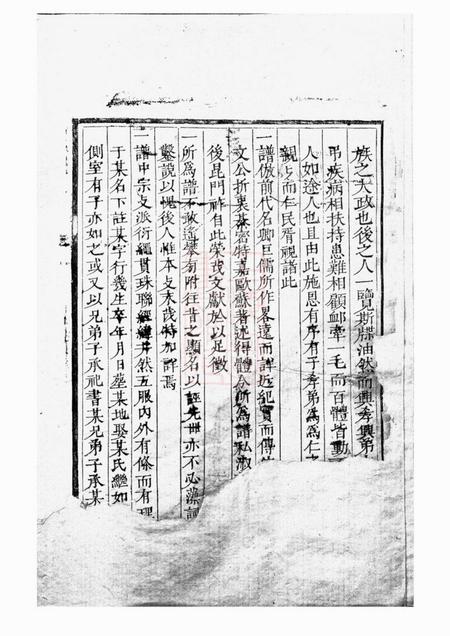 族之大政也後之人一覽斯牒油然而興孝興弟
弔疾病相扶持患難相顧卹牽一毛而百體皆動
人如途人也且由此施恩有序有子孝弟為為仁之
親親而仁民胥視諸此
一譜倣前代名卿巨儒所作畧遠而詳近紀實而傳
文公折衷茶密特嘉歐蘇著述得體今所為譜私淑
後昆門祚自此榮茂文獻於以足徵
一所為譜不敢遙攀旁附往昔之顯名以誣先世亦不必藻詞
鑿說以愧後人惟本支末茂特加詳焉
一譜中宗支派衍纚貫珠聯經緯井然五服內外有條而有理
于某名下註某字行幾生卒年月日葬某地娶某氏繼如
側室有子亦如之或又以兄弟子承祀書某兄弟子承某